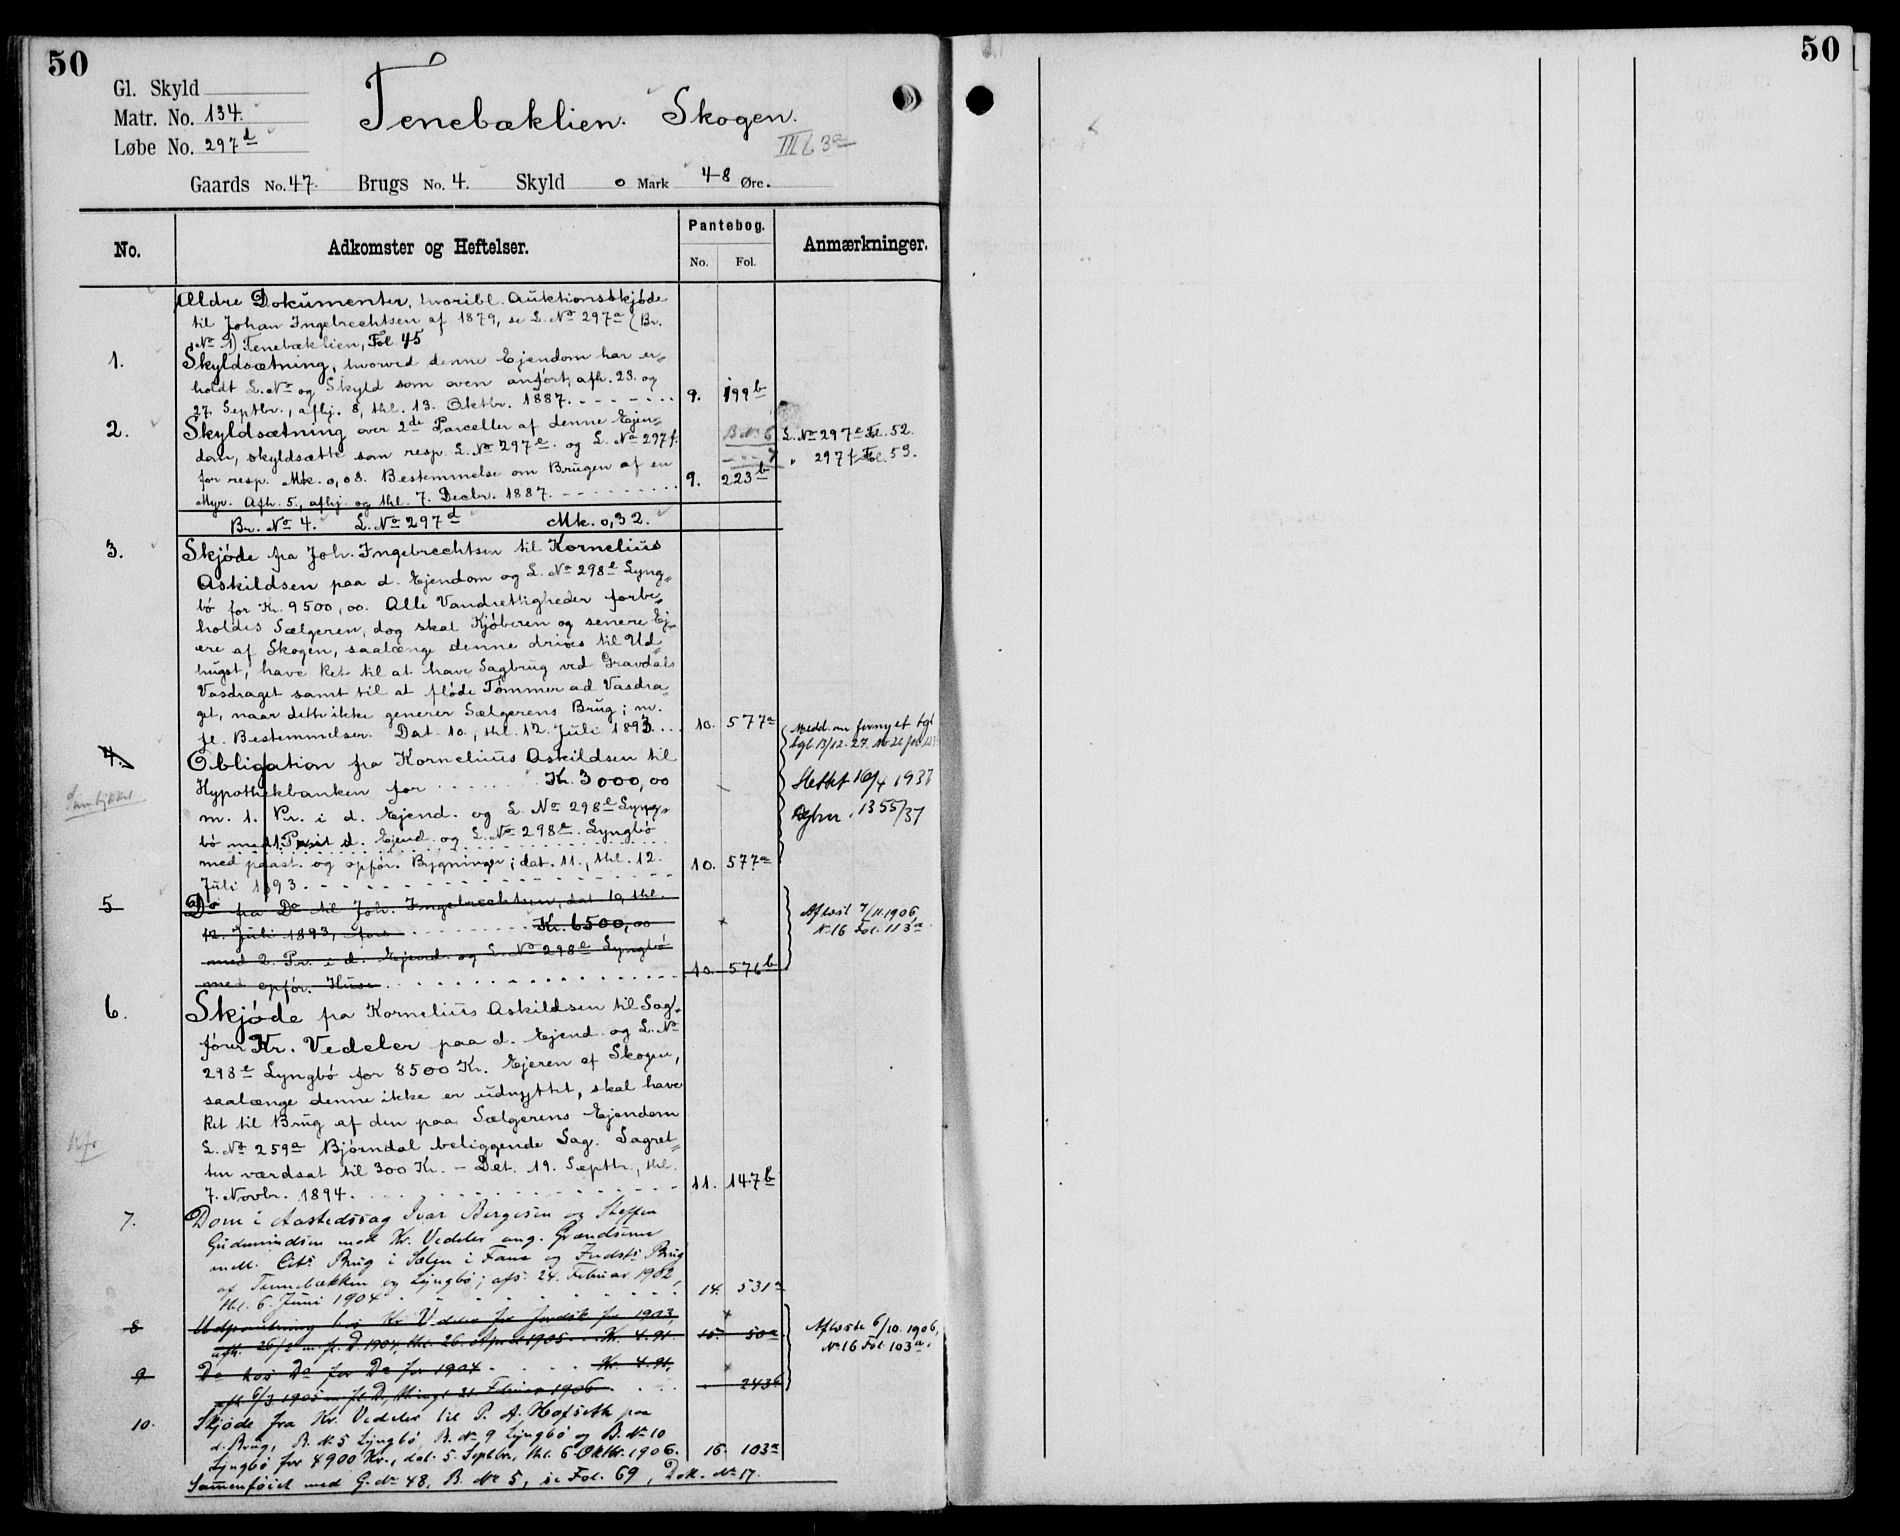 50
50
Gl. Skyld
Matr. No. 134.
Løbe No. 297d
Tenebæklien. Skogen.
III b 3a
Gaards No. 47. Brugs No. 4. Skyld 0 Mark 48 Øre.
No.
Adkomster og Heftelser.
Pantebog.
No. Fol.
Anmærkninger.
Ældre Dokumenter, hvoribl. Auktionsskjøde
til Johan Ingebrechtsen af 1879, se L. No 297a (Br.
No 1) Tenebæklien, Fol 45
1. Skyldsætning, hvorved denne Ejendom har er=
holdt L. No og Skyld som oven anført, afh. 23. og
27. Septbr., afhj. 8, thl. 13. Oktbr. 1887. 9. 199b
2. Skyldsætning over 2de Parceller af denne Ejen=
dom, skyldsatte som resp. L. No 297e og L. No 297f. B No 6 L. No 297e Fol. 52.
for resp. Mk. 0,08. Bestemmelse om Brugen af en 7 " 297f Fol. 53.
Myr. Afh. 5., afhj. og thl. 7. Decbr. 1887. 9. 223b
Br. No 4. L. No 297d Mk. 0,32.
3. Skjøde fra Joh. Ingebrechtsen til Kornelius
Askildsen paa d. Ejendom og L. No 298e Lyng=
bø for Kr. 9500,00. Alle Vandrettigheder forbe=
holdes Sælgeren, dog skal Kjøberen og senere Ej=
ere af Skogen, saalænge denne drives til Ud=
hugst, have Ret til at have Sagbrug ved Gravdals
Vasdraget samt til at fløde Tømmer ad Vasdra=
get, naar dette ikke generer Sælgerens Brug; m.
fl. Bestemmelser. Dat. 10., thl. 12. Juli 1893. 10. 577a
Medd. om fornyet tgl
tgl 13/12-27. No 26
4. Obligation fra Kornelius Askildsen til
Hypothekbanken for Kr. 3000,00
Slettet 16/4 1937
m. 1. Pr. i d. Ejend. og L. No 298e Lyng=
Dgbnr. 1355/37
bø med 1. Pr. i d. Ejend. og L. No 298e Lyngbø
med paast. og opfør. Bygninger; dat. 11., thl. 12.
Juli 1893. 10. 577a
5 Do fra Do til Joh. Ingebrechtsen, dat 10, thl.
12. Juli 1893, for Kr. 6500,00
Aflæst 7/11.1906,
No 16 Fol. 113a
med 2. Pr. i d. Ejend. og L. No 298e Lyngbø
med opfør. Huse 10. 576b
6. Skjøde fra Kornelius Askildsen til Sag=
fører Kr. Vedeler paa d. Ejend. og L. No
298e Lyngbø for 8500 Kr. Ejeren af Skogen,
saalænge denne ikke er udnyttet, skal have
Ret til Brug af den paa Sælgerens Ejendom
L. No 259a Bjørndal beliggende Sag. Sagret=
ten værdsat til 300 Kr. – Dat. 19. Septbr., thl.
7. Novbr. 1894. 11. 147b
7. Dom i Aastedssag Ivar Bergesen og Steffen
Gudmundsen mod Kr. Vedeler ang. Grændserne
mell. Cits Brug i Sælen i Fana og Indsts Brug
af Tennebækken og Lyngbø; afs. 24. Februar 1902,
thl. 6. Juni 1904 14. 531a
8 Udpantning hos Kr Vedeler for Jordsk for 1903,
afh. 26/2 m. fl. D. 1904, thl. 26. April 1905 Kr. 4.91. 15. 50a
Aflæste 6/10.1906,
No 16 Fol. 103a.
9 Do hos Do for Do for 1904 Kr. 4.91,
afh 6/3 1905 m. fl. D, thingl 21. Februar 1906 243b
10. Skjøde fra Kr. Vedeler til P. A. Hofseth paa
d. Brug, B. No 5 Lyngbø B. No 9 Lyngbø og B. No 10
Lyngbø for 4900 Kr., dat. 5. Septbr, thl. 6 Oktbr. 1906. 16. 103a
Sammenføiet med G. No 48, B. No 5, se Fol. 69, Dok. No 17.